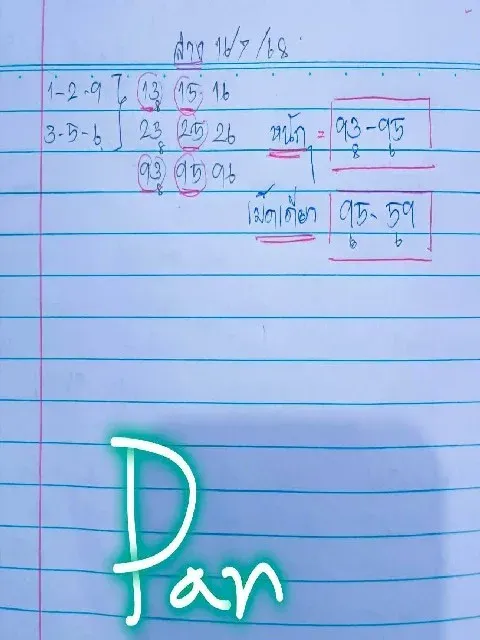 ล่าง 16/7/68
1-2-9 13 15 16
3-5-6 23 25 26 หนัก = 93-95
8 6
93 95 96
เม็ดเดียว 95-59
6 6
Pan